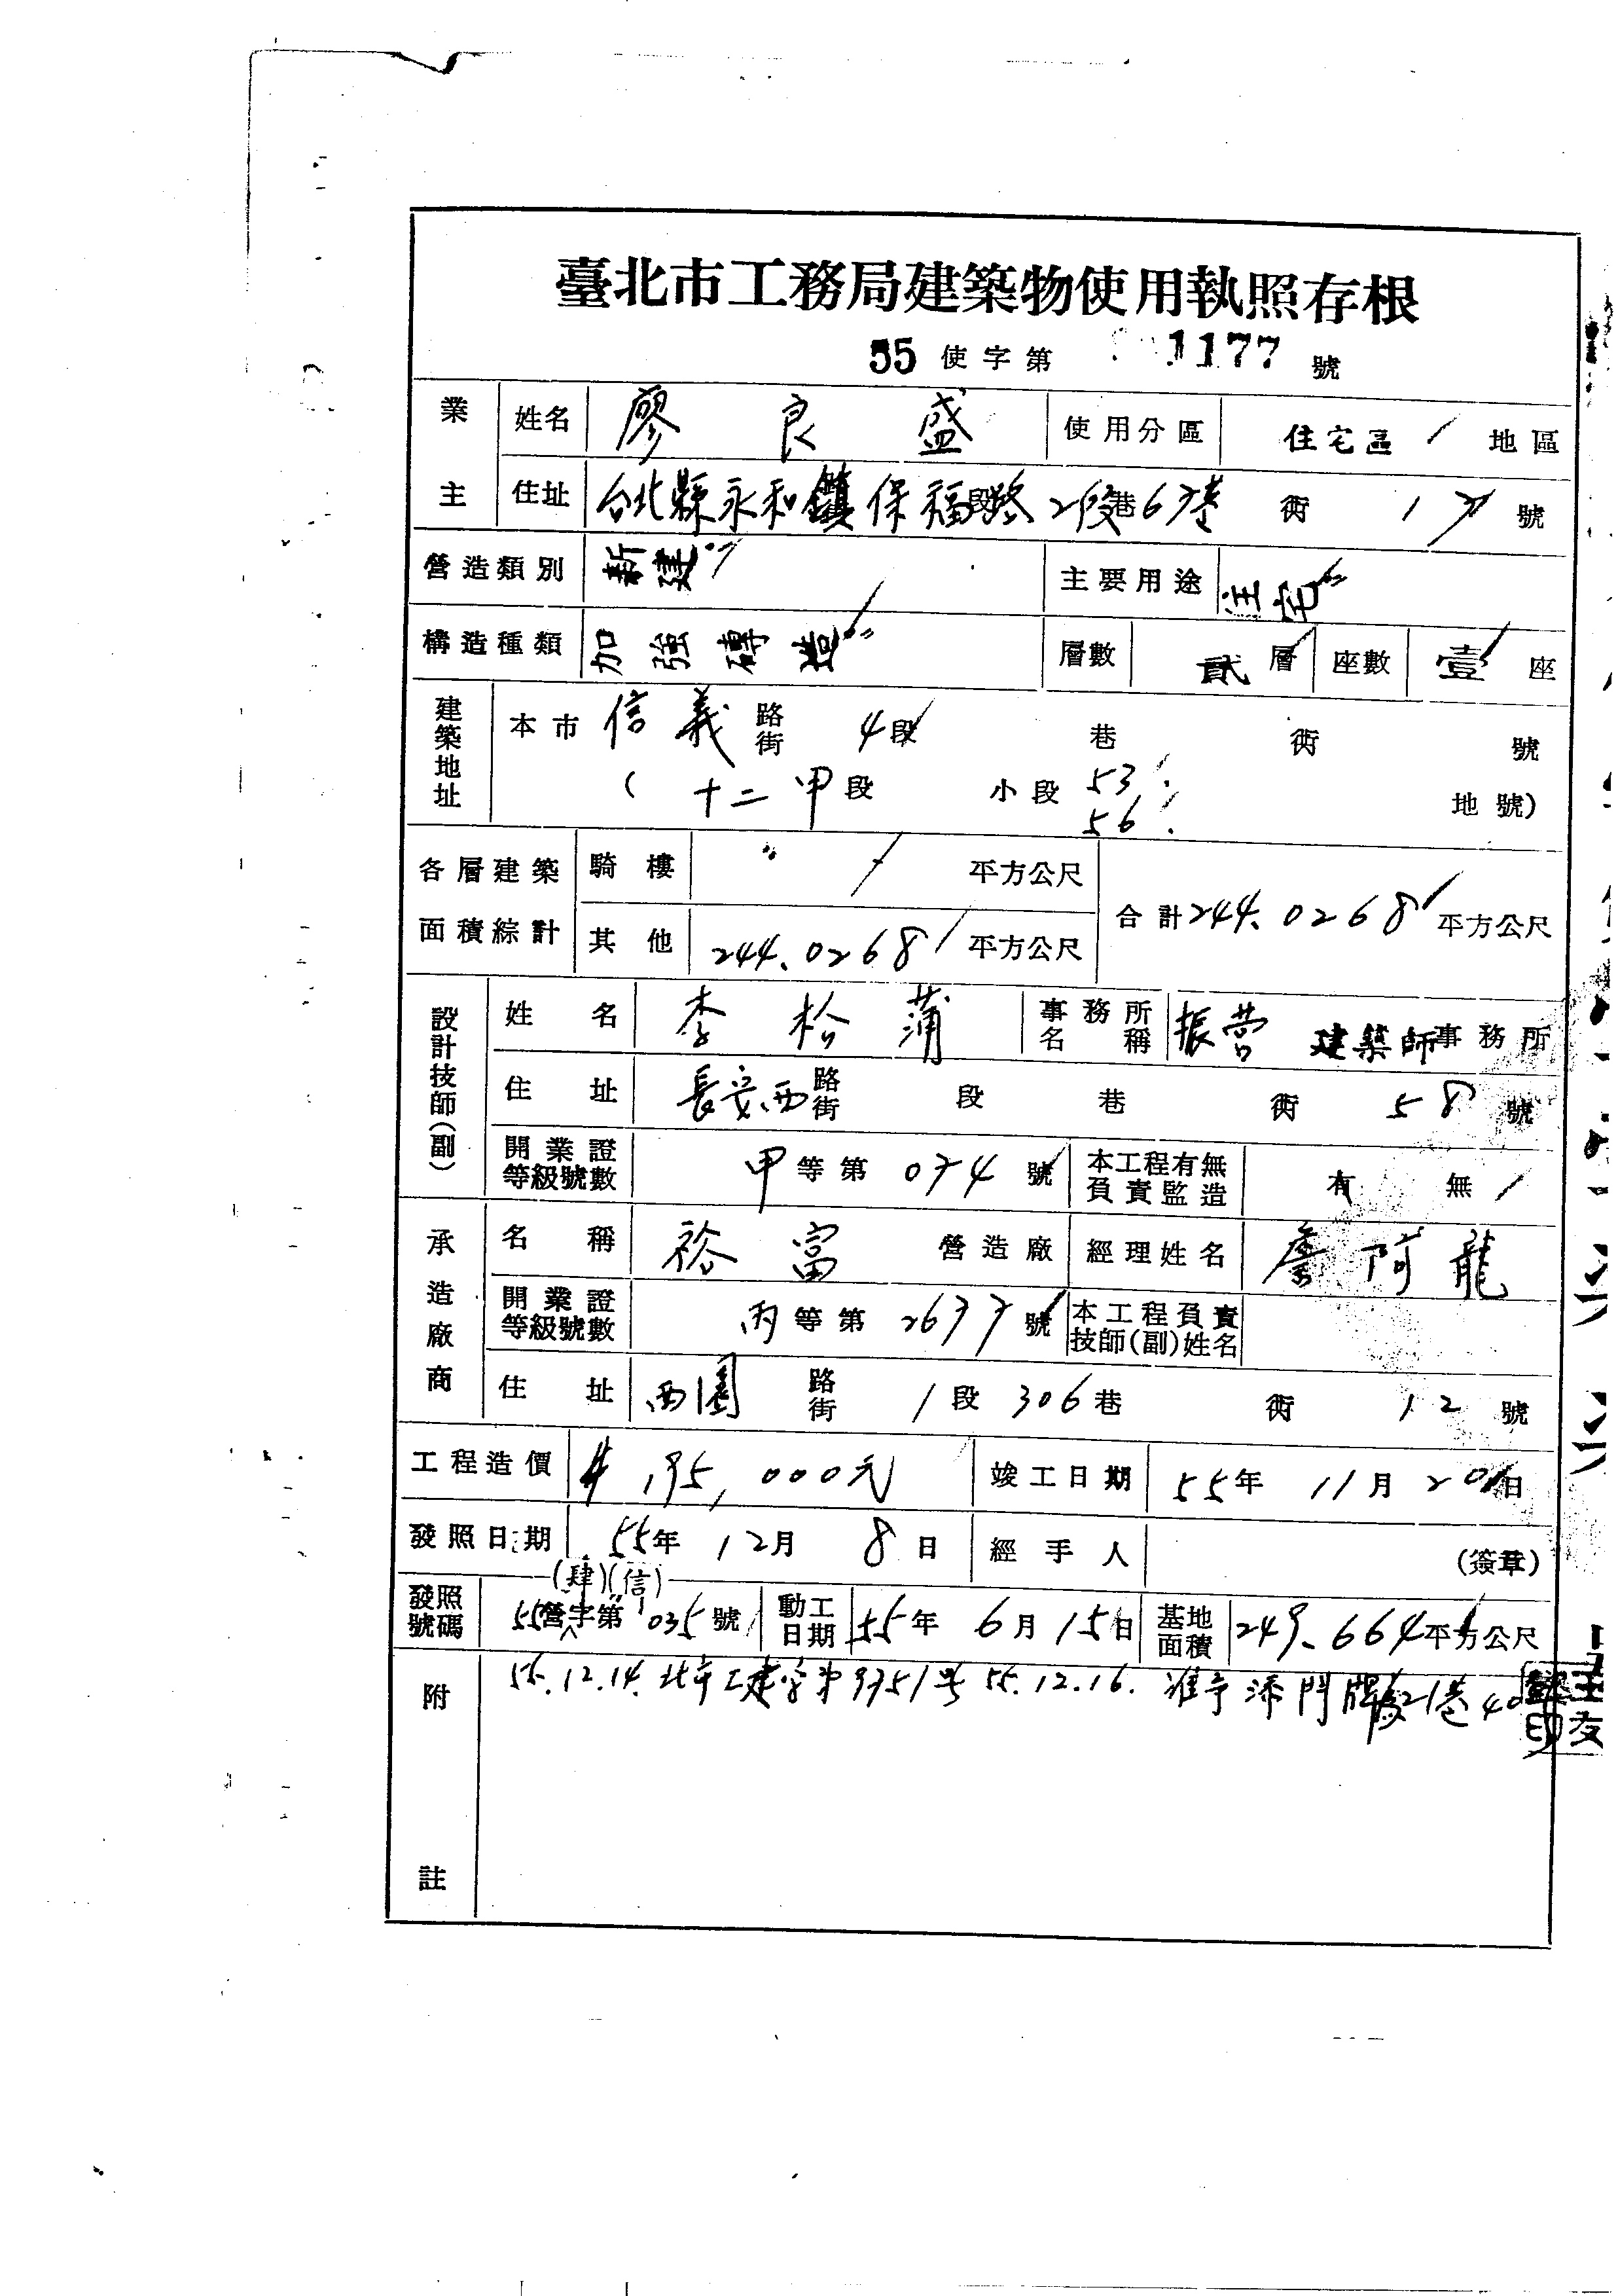 臺北市工務局建築物使用執照存根
55 使字第 1177 號
業主 姓名 廖良盛 使用分區 住宅區 地區
住址 台北縣永和鎮保福路2段67巷 衖 17 號
營造類別 新建 主要用途 住宅
構造種類 加強磚造 層數 貳層 座數 壹座
建築地址 本市 信義 路街 4段 巷 衖 號
( 十二甲段 小段 53 56 地號)
各層建築面積綜計 騎樓 平方公尺 合計 244.0268 平方公尺
其他 244.0268 平方公尺
設計技師(副) 姓名 李松蒲 事務所名稱 振營 建築師事務所
住址 長安西 路街 段 巷 衖 58 號
開業證等級號數 甲等第 074 號 本工程有無負責監造 有 無
承造廠商 名稱 裕富 營造廠 經理姓名 詹阿龍
開業證等級號數 丙等第 2677 號 本工程負責技師(副)姓名
住址 西園 路街 1段 306巷 衖 12 號
工程造價 195,000元 竣工日期 55年 11月 20日
發照日期 55年 12月 8日 經手人 (簽章)
(肆)(信)
發照號碼 55營字第1035號 動工日期 55年 6月 15日 基地面積 249.664平方公尺
附註 55.12.14.北市工建字第9751号 55.12.16. 准予添門牌 21巷40